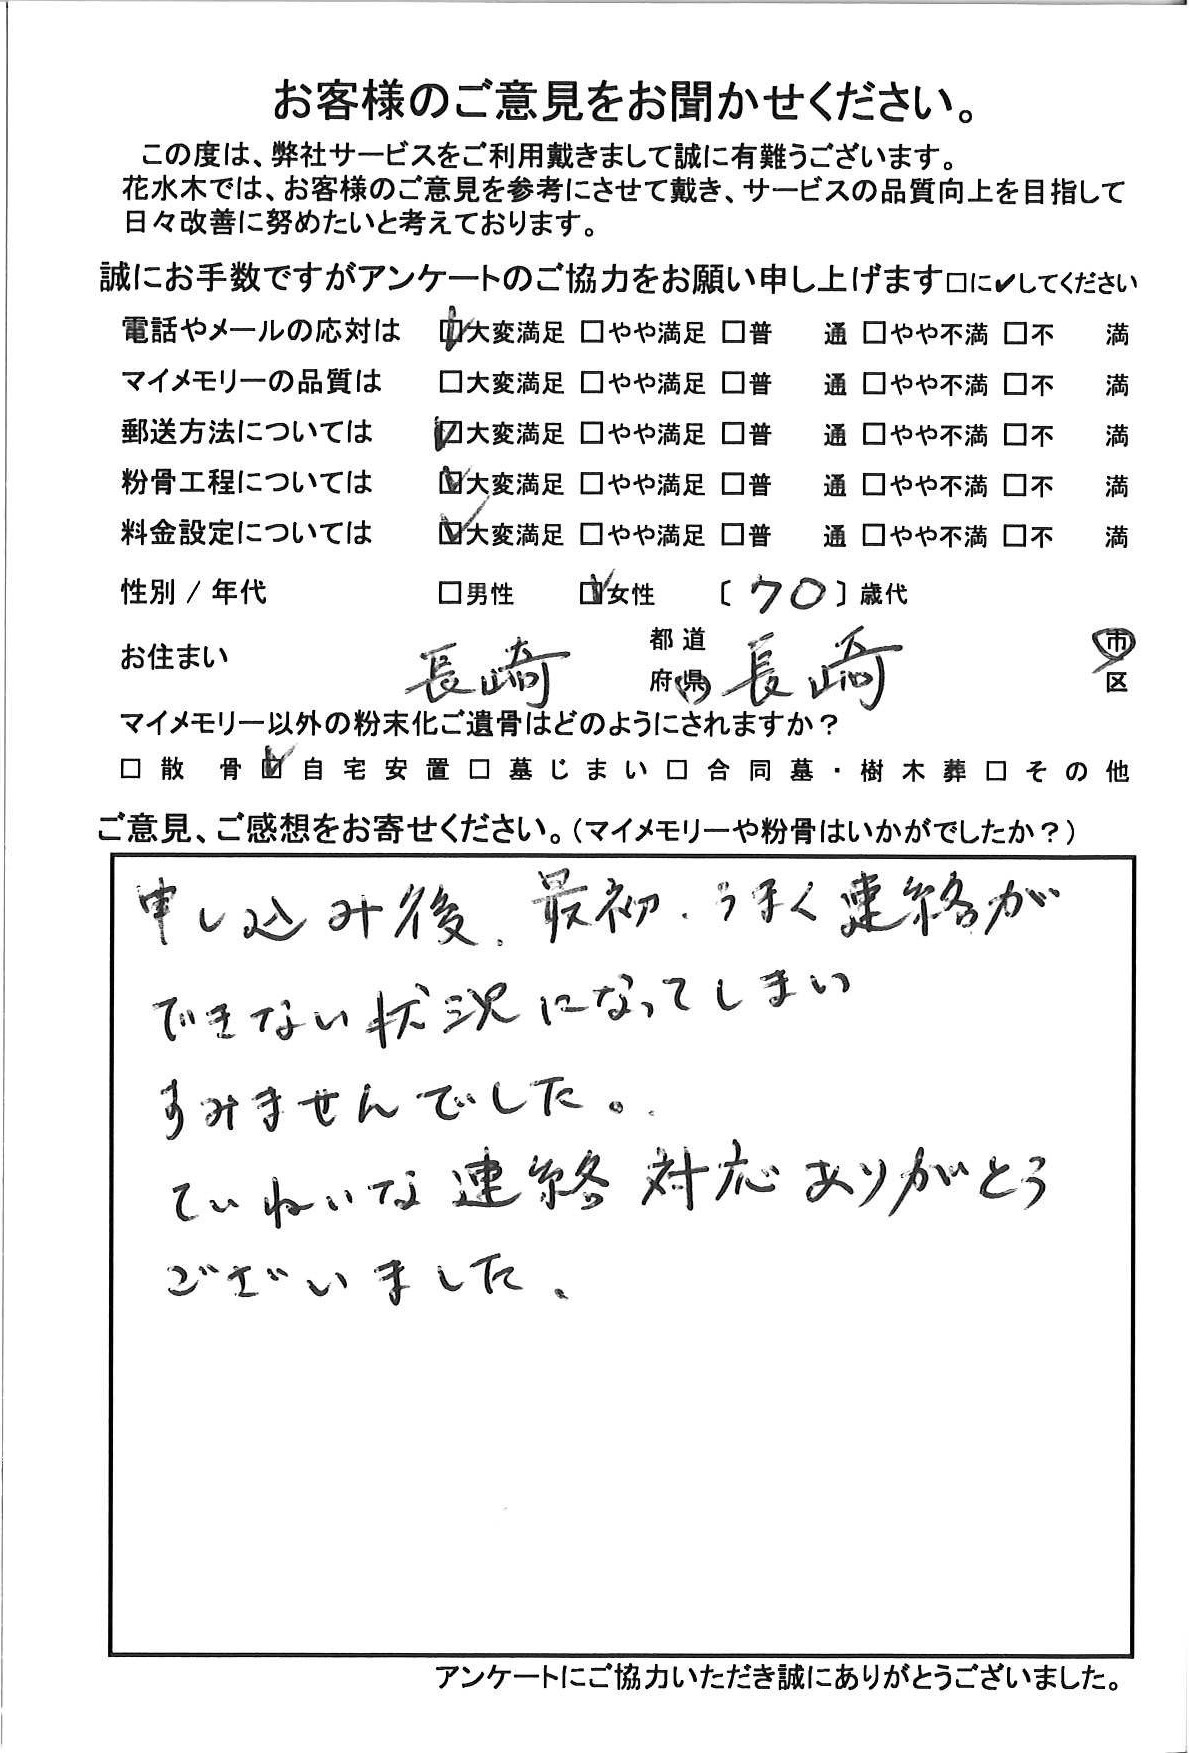 お客様のご意見をお聞かせください。
この度は、弊社サービスをご利用戴きまして誠に有難うございます。
花水木では、お客様のご意見を参考にさせて戴き、サービスの品質向上を目指して
日々改善に努めたいと考えております。
誠にお手数ですがアンケートのご協力をお願い申し上げます□に✔してください
電話やメールの応対は ☑大変満足 □やや満足 □普 通 □やや不満 □不 満
マイメモリーの品質は □大変満足 □やや満足 □普 通 □やや不満 □不 満
郵送方法については ☑大変満足 □やや満足 □普 通 □やや不満 □不 満
粉骨工程については ☑大変満足 □やや満足 □普 通 □やや不満 □不 満
料金設定については ☑大変満足 □やや満足 □普 通 □やや不満 □不 満
性別 / 年代 □男性 ☑女性 〔 70 〕歳代
お住まい 長崎 都道府県 長崎 市区
マイメモリー以外の粉末化ご遺骨はどのようにされますか？
□ 散 骨 ☑ 自宅安置 □ 墓じまい □ 合同墓・樹木葬 □ その他
ご意見、ご感想をお寄せください。（マイメモリーや粉骨はいかがでしたか？）
申し込み後、最初、うまく連絡が
できない状況になってしまい
すみませんでした。
ていねいな連絡対応ありがとう
ございました。
アンケートにご協力いただき誠にありがとうございました。